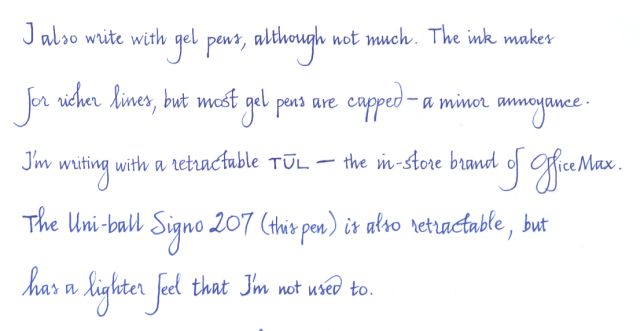 I also write with gel pens, although not much. The ink makes
for richer lines, but most gel pens are capped – a minor annoyance.
I'm writing with a retractable TŪL – the in-store brand of OfficeMax.
The Uni-ball Signo 207 (this pen) is also retractable, but
has a lighter feel that I'm not used to.